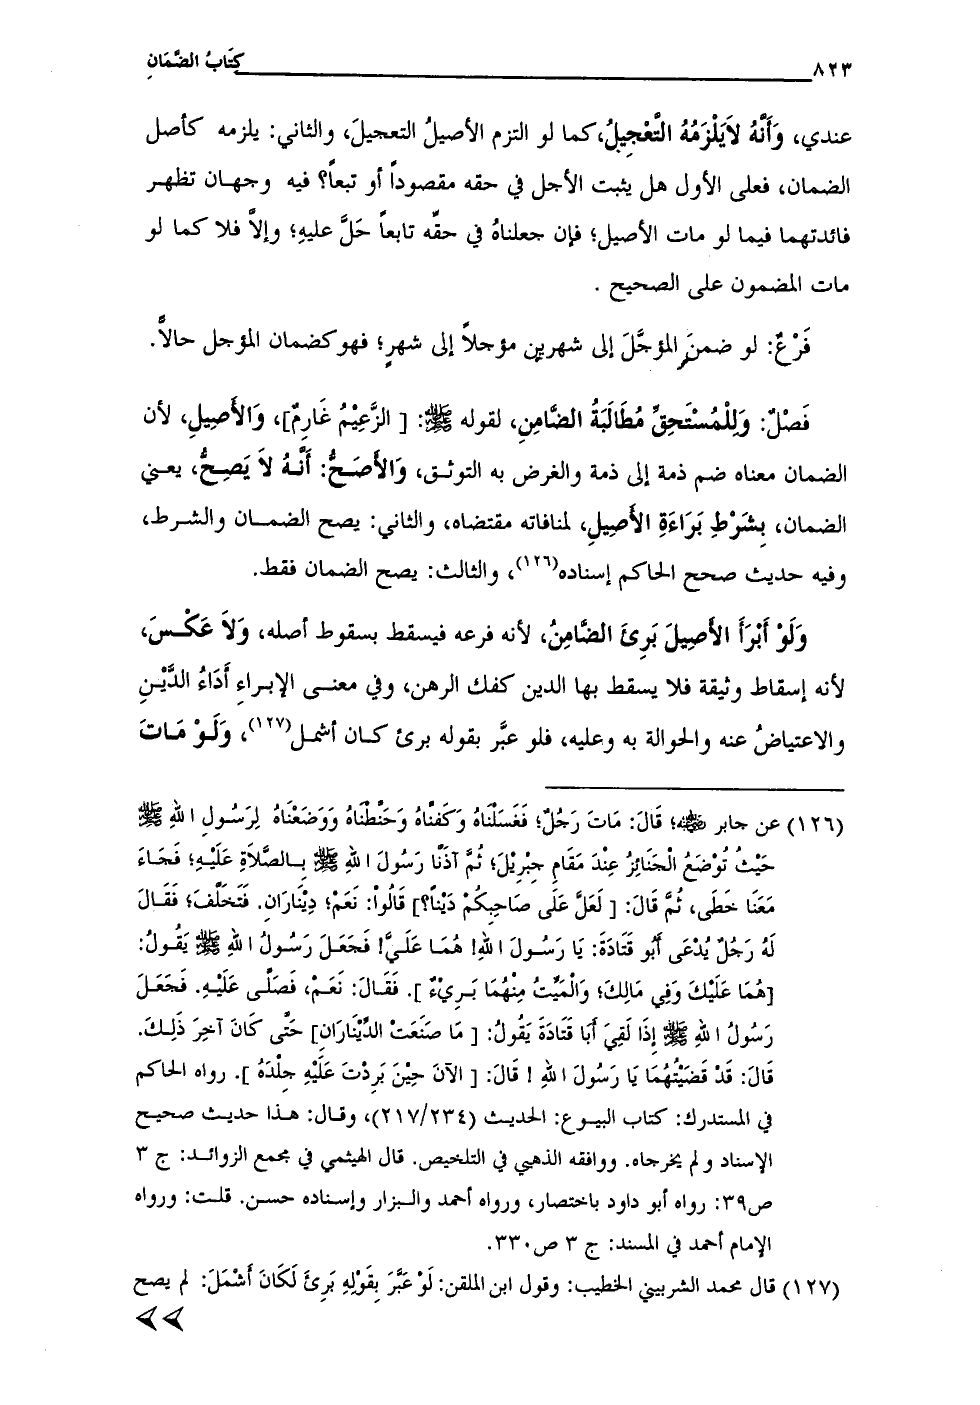 ٨٢٣ كتَابُ الضَّمَانِ
عندي، وَأَنَّهُ لاَيَلْزَمُهُ التَّعْجِيلُ، كما لو التزم الأصيلُ التعجيلَ، والثاني: يلزمه كأصل
الضمان، فعلى الأول هل يثبت الأجل في حقه مقصوداً أو تبعاً؟ فيه وجهان تظهر
فائدتهما فيما لو مات الأصيل؛ فإن جعلناهُ في حقّه تابعاً حَلَّ عليهِ؛ وإلاَّ فلا كما لو
مات المضمون على الصحيح .
فَرْعٌ: لو ضمنَ المؤجَّلَ إلى شهرينِ مؤجلاً إلى شهرٍ؛ فهو كضمان المؤجل حالاًّ.
فَصْلٌ: وَلِلْمُسْتَحِقِّ مُطَالَبَةُ الضَّامِنِ، لقوله ﷺ: [ الزَّعِيْمُ غَارِمٌ]، وَالأَصِيلِ، لأن
الضمان معناه ضم ذمة إلى ذمة والغرض به التوثق، وَالأَصَحُّ: أَنَّهُ لاَ يَصِحُّ، يعني
الضمان، بِشَرْطِ بَرَاءَةِ الأَصِيلِ، لمنافاته مقتضاه، والثاني: يصح الضمان والشرط،
وفيه حديث صحح الحاكم إسناده(١٢٦)، والثالث: يصح الضمان فقط.
وَلَوْ أَبْرَأَ الأَصِيلَ بَرِئَ الضَّامِنُ، لأنه فرعه فيسقط بسقوط أصله، وَلاَ عَكْسَ،
لأنه إسقاط وثيقة فلا يسقط بها الدين كفك الرهن، وفي معنى الإبراءِ أَدَاءُ الدَّيْنِ
والاعتياضُ عنه والحوالة به وعليه، فلو عبَّر بقوله برئ كان أشمل(١٢٧)، وَلَوْ مَاتَ
(١٢٦) عن جابر ﷺ؛ قَالَ: مَاتَ رَجُلٌ؛ فَغَسَلْنَاهُ وَكَفَنَّاهُ وَحَنَّطْنَاهُ وَوَضَعْنَاهُ لِرَسُولِ اللهِ ﷺ
حَيْثُ تُوْضَعُ الْجَنَائِزُ عِنْدَ مَقَامِ جِبْرِيْلَ؛ ثُمَّ آذَنَّا رَسُوْلَ اللهِ ﷺ بِالصَّلاَةِ عَلَيْهِ؛ فَجَاءَ
مَعَنَا خَطَى، ثُمَّ قَالَ: [ لَعَلَّ عَلَى صَاحِبِكُمْ دَيْناً؟] قَالُواْ: نَعَمْ؛ دِيْنَارَانِ. فَتَخَلَّفَ؛ فَقَالَ
لَهُ رَجُلٌ يُدْعَى أَبُو قَتَادَةَ: يَا رَسُوْلَ اللهِ! هُمَا عَلَيَّ! فَجَعَلَ رَسُوْلُ اللهِ ﷺ يَقُولُ:
[هُمَا عَلَيْكَ وَفِي مَالِكَ؛ وَالْمَيِّتُ مِنْهُمَا بَرِيْءٌ ]. فَقَالَ: نَعَمْ، فَصَلَّى عَلَيْهِ. فَجَعَلَ
رَسُوْلُ اللهِ ﷺ إِذَا لَقِيَ أَبَا قَتَادَةَ يَقُولُ: [ مَا صَنَعَتْ الدِّيْنَارَانِ] حَتَّى كَانَ آخِرَ ذَلِكَ.
قَالَ: قَدْ قَضَيْتُهُمَا يَا رَسُوْلَ اللهِ ! قَالَ: [ الآنَ حِيْنَ بَرِدْتَ عَلَيْهِ جِلْدَهُ ]. رواه الحاكم
في المستدرك: كتاب البيوع: الحديث (٢١٧/٢٣٤)، وقال: هذا حديث صحيح
الإسناد ولم يخرجاه. ووافقه الذهبي في التلخيص. قال الهيثمي في مجمع الزوائد: ج ٣
ص٣٩: رواه أبو داود باختصار، ورواه أحمد والبزار وإسناده حسن. قلت: ورواه
الإمام أحمد في المسند: ج ٣ ص٣٣٠.
(١٢٧) قال محمد الشربيني الخطيب: وقول ابن الملقن: لَوْ عَبَّرَ بِقَوْلِهِ بَرِئَ لَكَانَ أَشْمَلَ: لم يصح